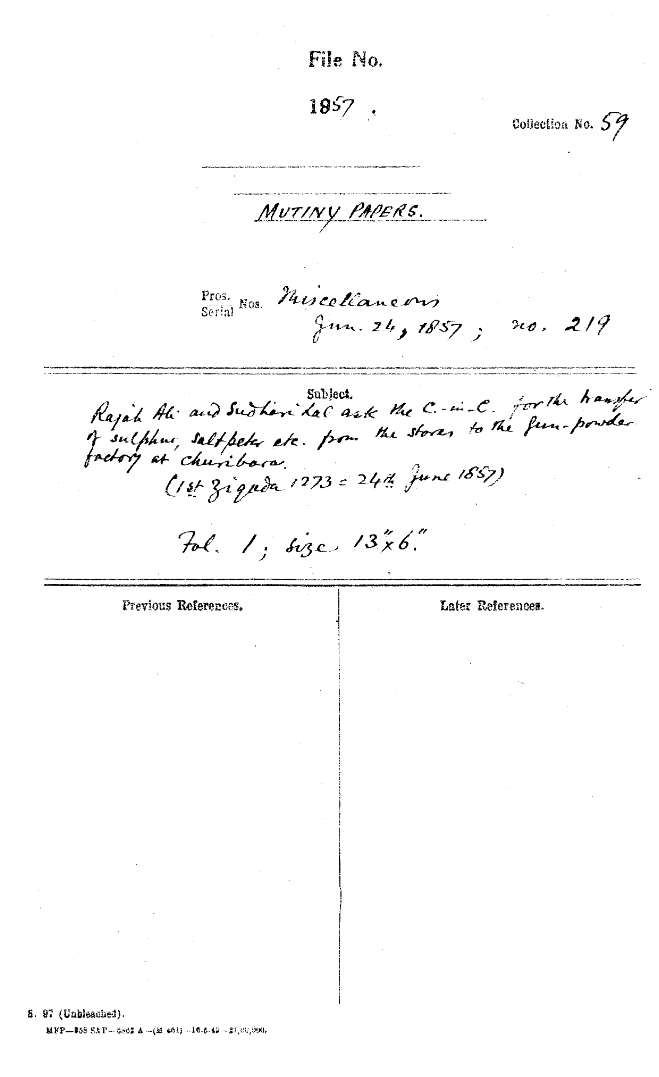 File No.
1857.
Collection No. 59
MUTINY PAPERS.
Pros.
Serial Nos. Miscellaneous
Jun. 24, 1857; no. 219
Subject.
Rajab Ali and Sudhari Lal ask the C.-in-C. for the transfer
of sulphur, saltpeter etc. from the stores to the Gun-powder
factory at Churibara.
(1st Ziqada 1273 = 24th June 1857)
Fol. 1; size 13"x6".
Previous References. Later References.
S. 97 (Unbleached).